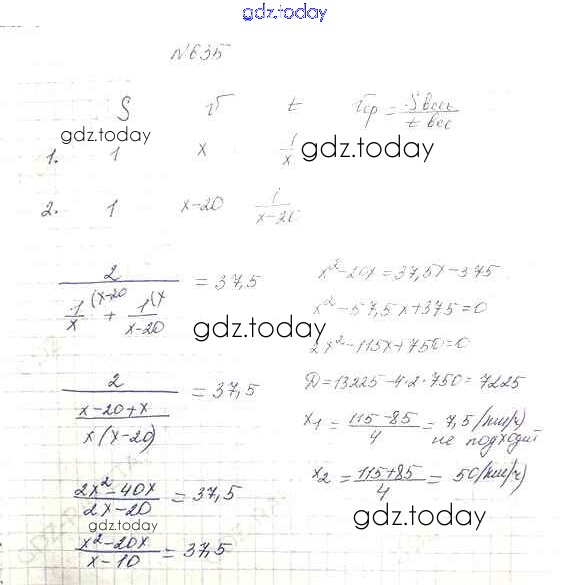 gdz.today
№635
S v t vср = Sвсы / t вес
gdz.today
1. 1 x 1/x
gdz.today
2. 1 x-20 1/(x-20)
2 / (1/x (x-20 + 1/(x-20) (x) = 37,5
gdz.today
2 / ((x-20+x) / (x(x-20))) = 37,5
(2x²-40x) / (2x-20) = 37,5
gdz.today
(x²-20x) / (x-10) = 37,5
x²-20x = 37,5x-375
x²-57,5x+375=0
2x²-115x+750=0
D=13225-4·2·750=7225
x₁ = (115-85)/4 = 7,5 (км/ч)
не подходит
x₂ = (115+85)/4 = 50 (км/ч)
gdz.today